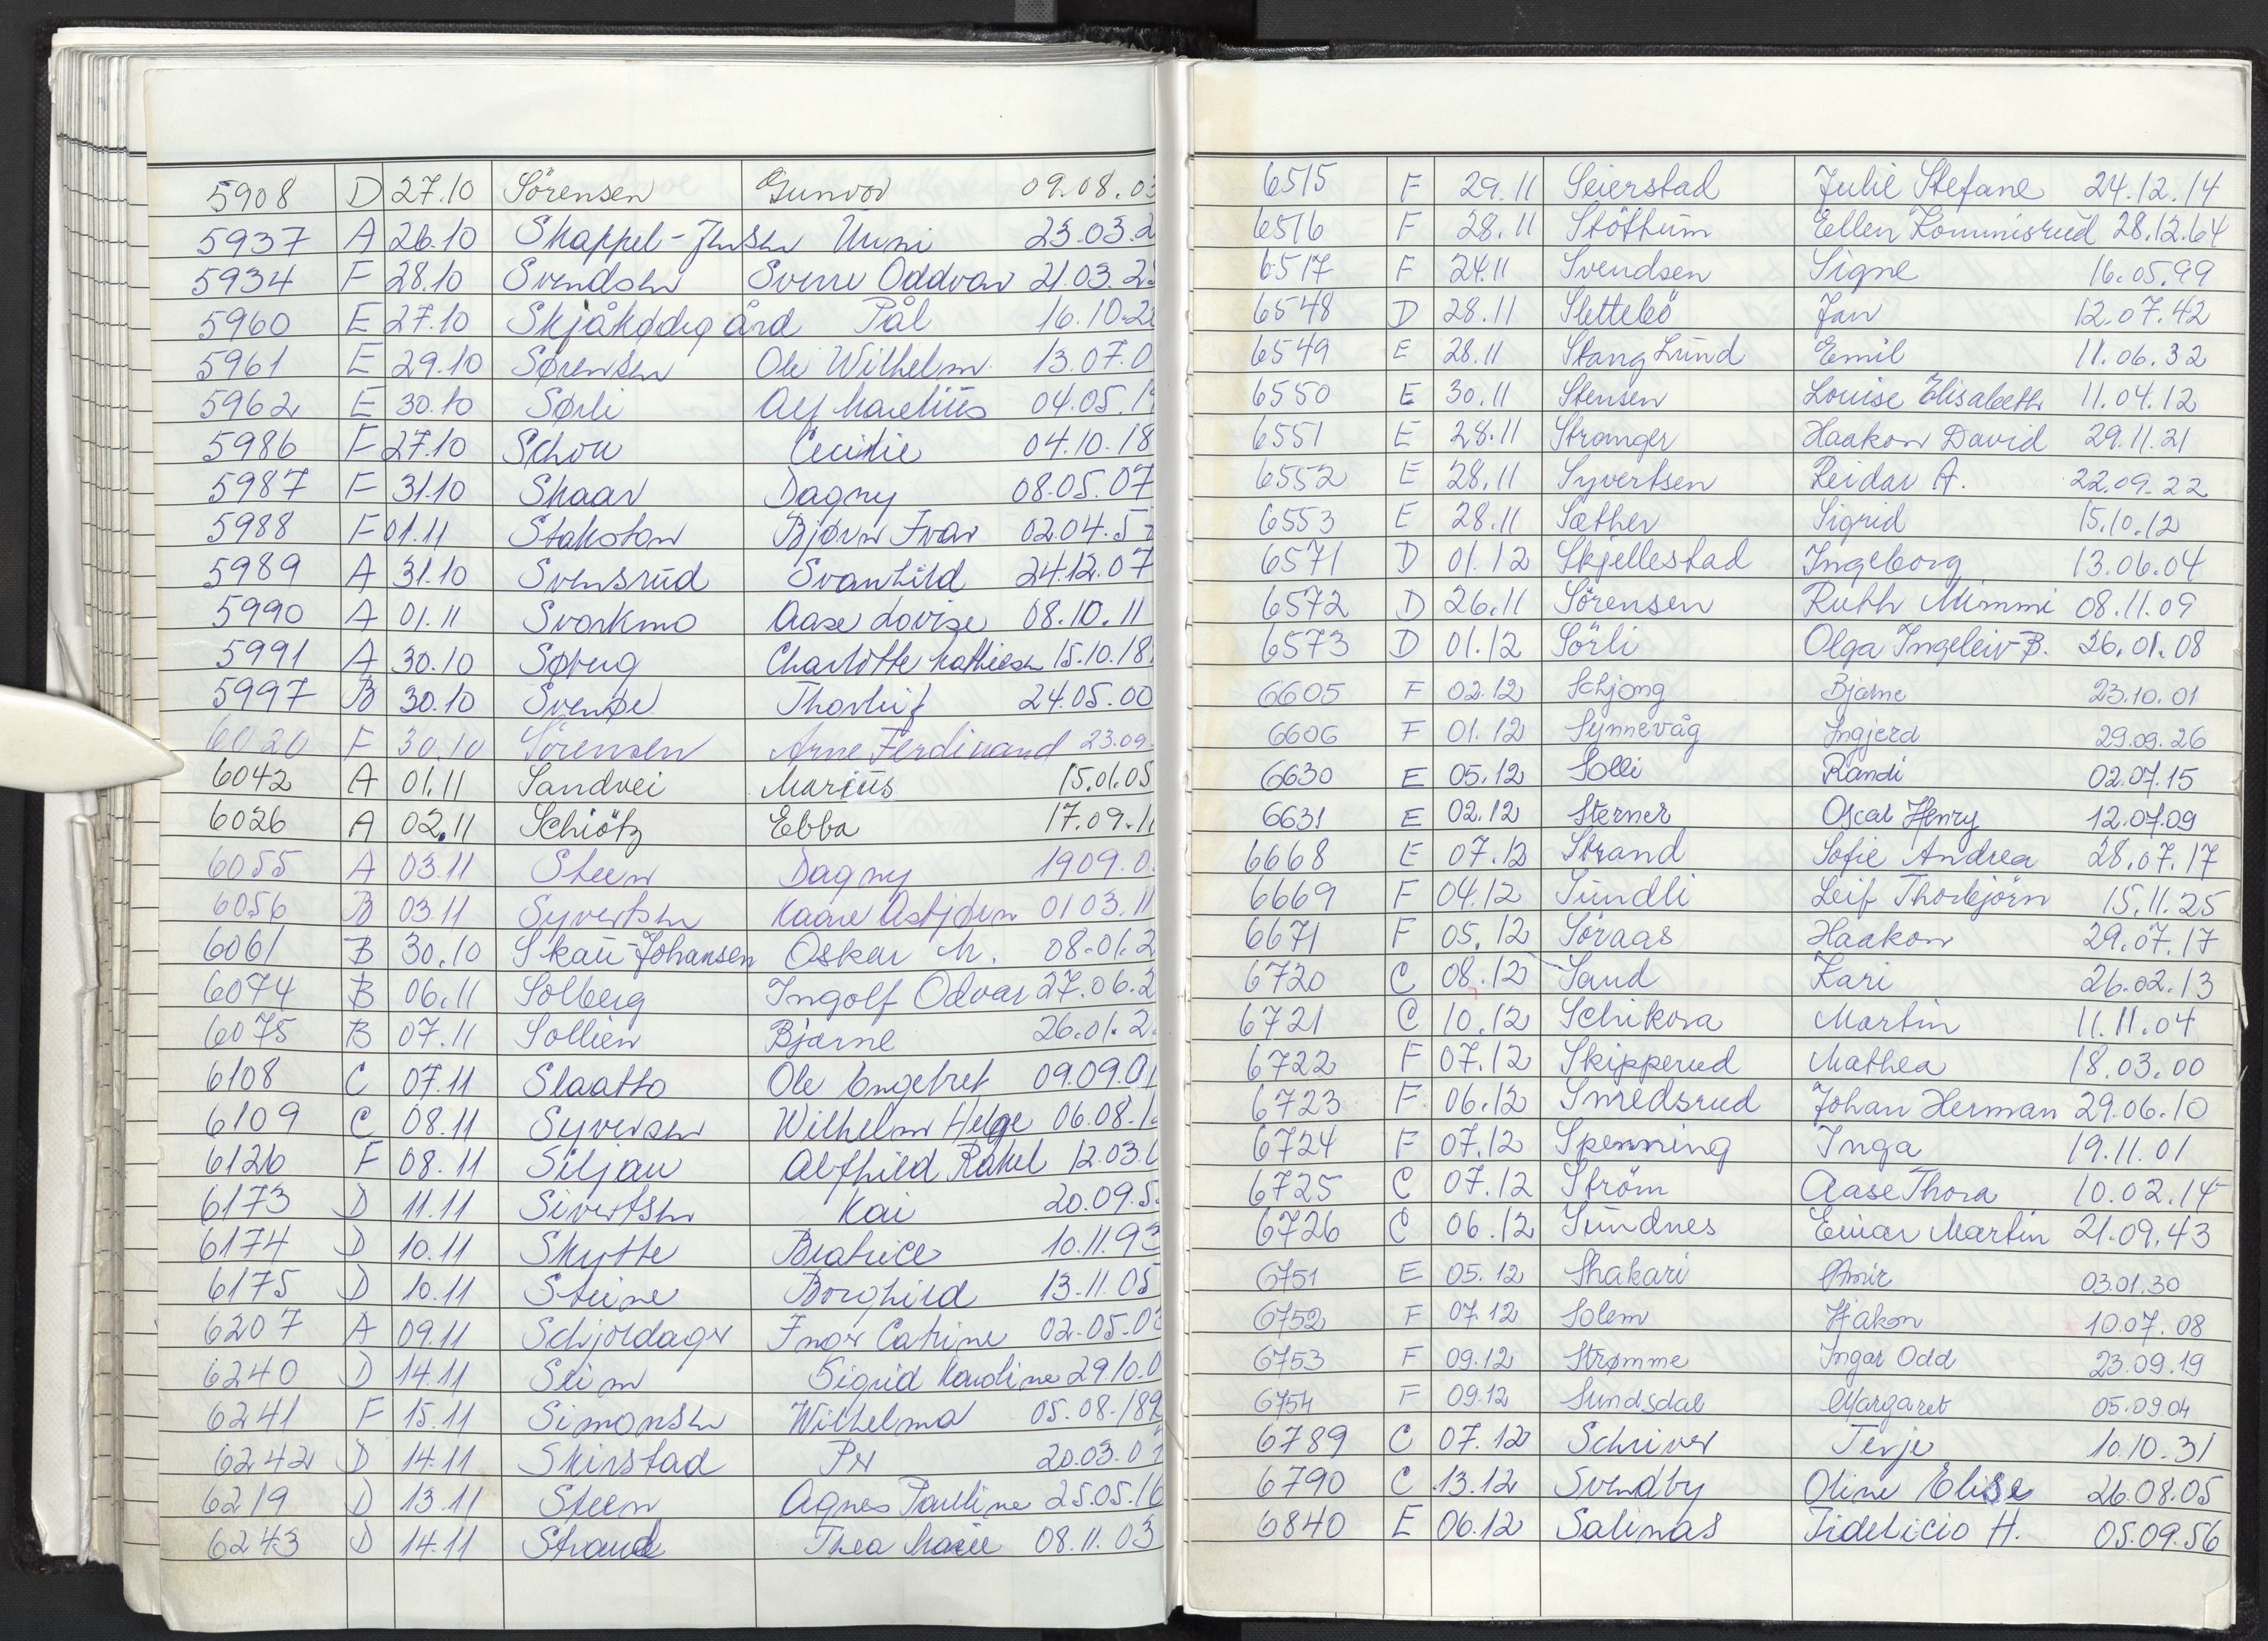 5908 D 27.10 Sörensen Gunvor 09.08.03
5937 A 26.10 Skappel-Jensen Unni 23.03.2
5934 F 28.10 Svendsen Sverre Oddvar 21.03.2
5960 E 27.10 Skjåkødegård Pål 16.10.2
5961 E 29.10 Sørensen Ole Wilhelm 13.07.0
5962 E 30.10 Sørli Alf Marelius 04.05.1
5986 F 27.10 Schou Cecilie 04.10.18
5987 F 31.10 Skaar Dagny 08.05.07
5988 F 01.11 Stakston Bjørn Ivar 02.04.5
5989 A 31.10 Svensrud Svanhild 24.12.07
5990 A 01.11 Svorkmo Aase Lovise 08.10.11
5991 A 30.10 Søberg Charlotte Mathiesen 15.10.18
5997 B 30.10 Svenøe Thorleif 24.05.00
6020 F 30.10 Sörensen Arne Ferdinand 23.09.
6042 A 01.11 Sandvei Marius 15.01.05
6026 A 02.11 Schiötz Ebba 17.09.11
6055 A 03.11 Steen Dagny 1909.0
6056 B 03.11 Syvertsen Kaare Asbjørn 01 03.11
6061 B 30.10 Skau-Johansen Oskar M. 08.01.2
6074 B 06.11 Solberg Ingolf Odvar 27.06.2
6075 B 07.11 Sollien Bjarne 26.01.2
6108 C 07.11 Slaatto Ole Engebret 09.09.01
6109 C 08.11 Syversen Wilhelm Helge 06.08.1
6126 F 08.11 Siljan Alfhild Rakel 12.03.0
6173 D 11.11 Sivertsen Kai 20.09.5
6174 D 10.11 Skytte Beatrice 10.11.93
6175 D 10.11 Steine Borghild 13.11.05
6207 A 09.11 Schjoldager Inger Catrine 02.05.0
6240 D 14.11 Seim Sigrid Karoline 29.10.0
6241 F 15.11 Simonsen Wilhelma 05.08.189
6242 D 14.11 Skirstad Per 20.03.07
6219 D 13.11 Steen Agnes Pauline 25.05.16
6243 D 14.11 Strand Thea Marie 08.11.03
6515 F 29.11 Seierstad Julie Stefane 24.12.14
6516 F 28.11 Støthum Ellen Kommisrud 28.12.64
6517 F 24.11 Svendsen Signe 16.05.99
6548 D 28.11 Slettebö Jan 12.07.42
6549 E 28.11 Stang Lund Emil 11.06.32
6550 E 30.11 Stensen Louise Elisabeth 11.04.12
6551 E 28.11 Stranger Haakon David 29.11.21
6552 E 28.11 Syvertsen Reidar A. 22.09.22
6553 E 28.11 Sæther Sigrid 15.10.12
6571 D 01.12 Skjellestad Ingeborg 13.06.04
6572 D 26.11 Sörensen Ruth Mimmi 08.11.09
6573 D 01.12 Sörli Olga Ingeleiv B. 26.01.08
6605 F 02.12 Schjong Bjarne 23.10.01
6606 F 01.12 Synnevåg Ingjerd 29.09.26
6630 E 05.12 Solli Randi 02.07.15
6631 E 02.12 Sterner Oscar Henry 12.07.09
6668 E 07.12 Strand Sofie Andrea 28.07.17
6669 F 04.12 Sundli Leif Thorbjörn 15.11.25
6671 F 05.12 Söraas Haakon 29.07.17
6720 C 08.12 Sand Kari 26.02.13
6721 C 10.12 Schikora Martin 11.11.04
6722 F 07.12 Skipperud Mathea 18.03.00
6723 F 06.12 Smedsrud Johan Herman 29.06.10
6724 F 07.12 Spenning Inga 19.11.01
6725 C 07.12 Ström Aase Thora 10.02.14
6726 C 06.12 Sundnes Einar Martin 21.09.43
6751 E 05.12 Shakari Amir 03.01.30
6752 F 07.12 Solem Håkon 10.07.08
6753 F 09.12 Strømme Ingar Odd 23.09.19
6754 F 09.12 Sundsdal Margaret 05.09.04
6789 C 07.12 Schriver Terje 10.10.31
6790 C 13.12 Svendby Oline Elise 26.08.05
6840 E 06.12 Salinas Fidelicio H. 05.09.56